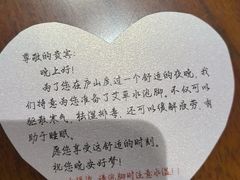 尊敬的贵宾:
晚上好!
为了您在庐山度过一个舒适的夜晚,我
们特意为您准备了艾草水泡脚。不仅可以
驱散寒气、祛湿排毒、还可以缓解疲劳,有
助于睡眠。
愿您享受这舒适的时刻。
祝您晚安好梦!